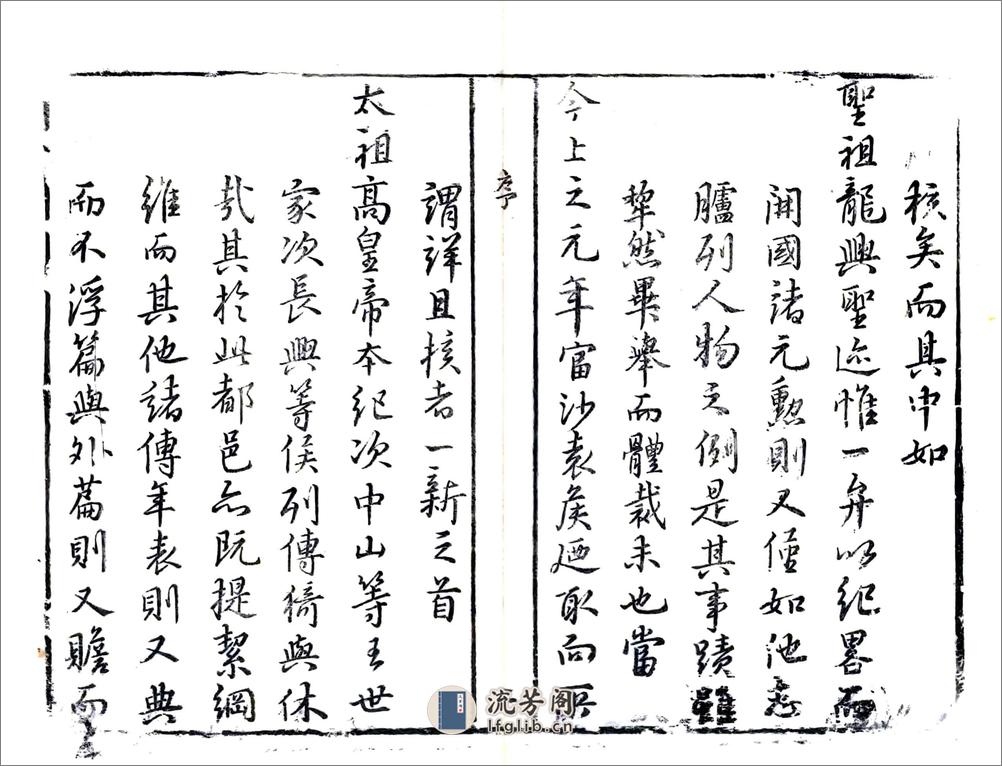 核矣而其中如
聖祖龍興聖迹惟一弁以紀畧而
開國諸元勳則又僅如他志
臚列人物之例是其事蹟雖
犂然畢舉而體裁未也當
今上之元年富沙袁侯廼取而所
序
謂詳且核者一新之首
太祖高皇帝本紀次中山等王世
家次長興等侯列傳猗與休
哉其於此都邑亦既提絜綱
維而其他諸傳年表則又典
而不浮篇與外篇則又贍而
流芳阁
lfglib.cn